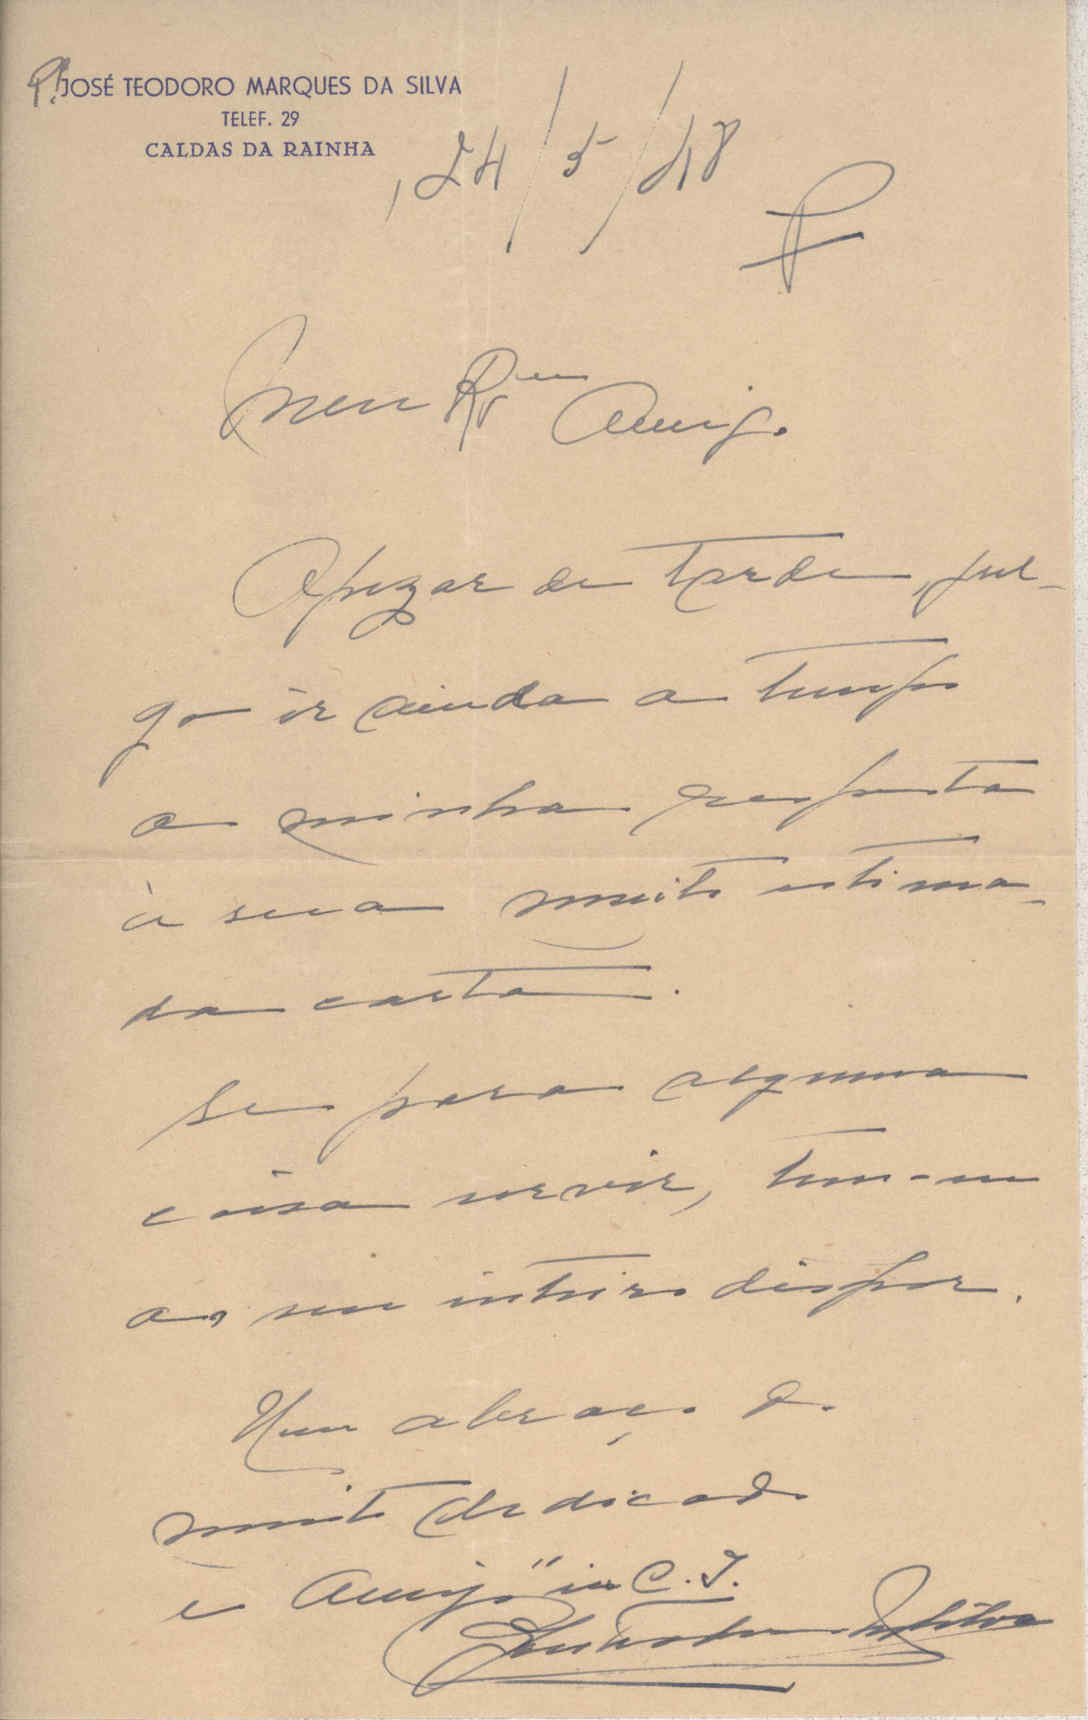 P.e JOSÉ TEODORO MARQUES DA SILVA
TELEF. 29
CALDAS DA RAINHA
, 24/5/48
Meu Rev Amigo
Apezar de tarde, jul-
go ir ainda a tempo
a minha resposta
à sua muito estima-
da carta.
Se para alguma
coisa servir, tem-me
ao seu inteiro dispor.
Num abraço o
muito dedicado
e Amigo "in C. J.
José Teodoro da Silva